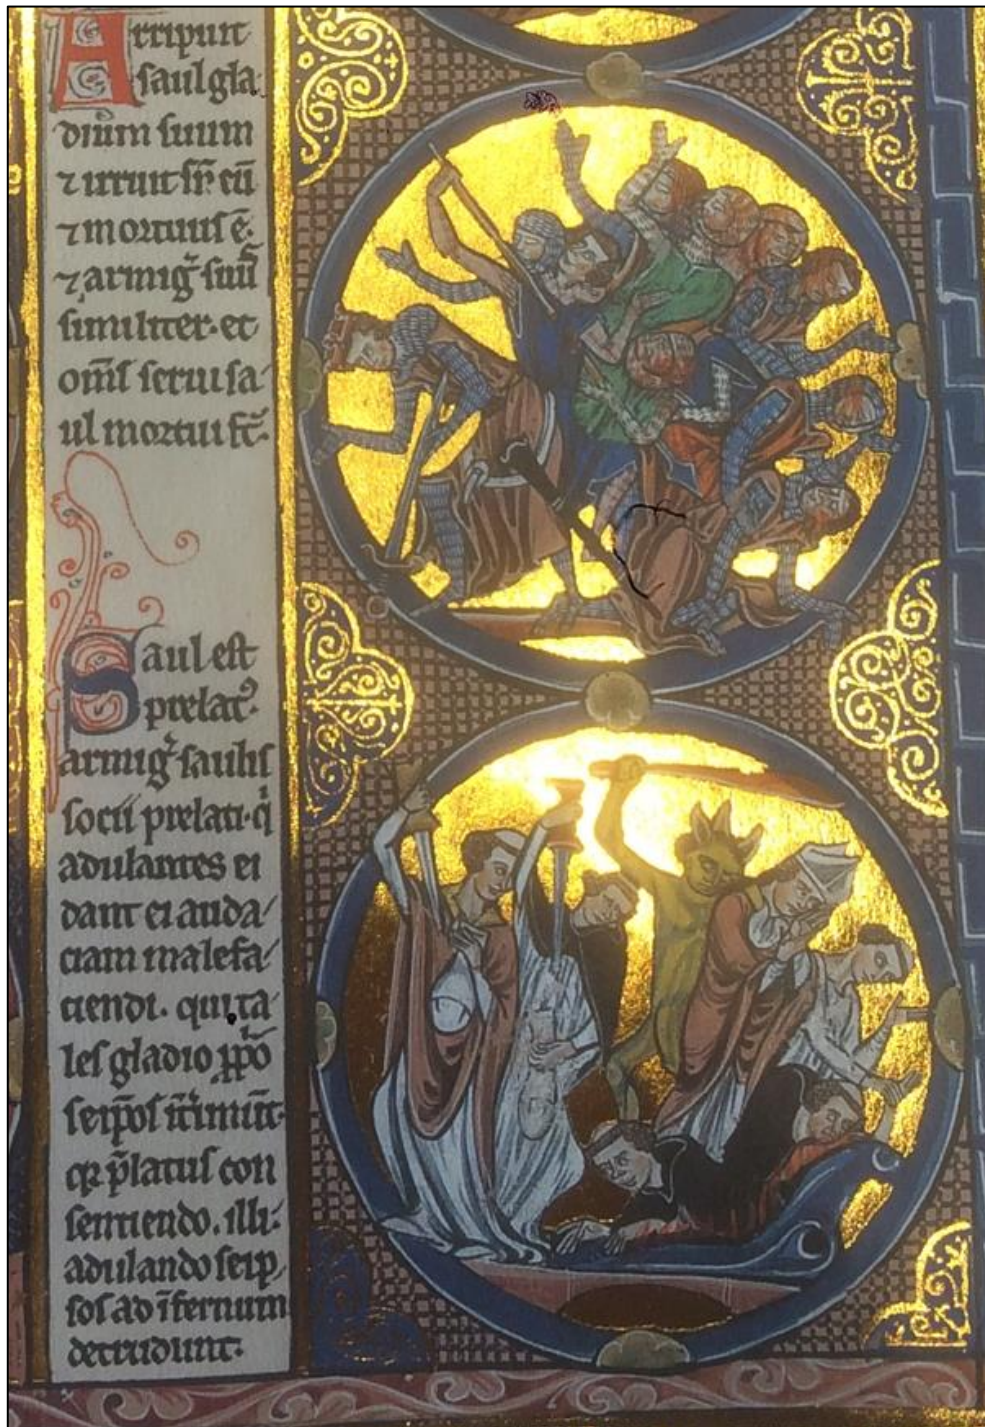 Arripuit
saul gla
dium suum
⁊ irruit sr̄ eū
⁊ mortuus ē.
⁊ armiḡ suus
similiter. et
om̄s serui sa
ul mortui st̄.
Saul est
prelatꝰ.
armiḡ saulis
socii prelati. qͥ
adulantes ei
dant ei auda/
ciam malefa/
ciendi. qui ta
les gladio ꝓp̄o
seip̄os īt̄imūt.
qꝛ p̄latus con
sentiendo. illi.
adulando seip/
sos ad īfernum
detrudunt.